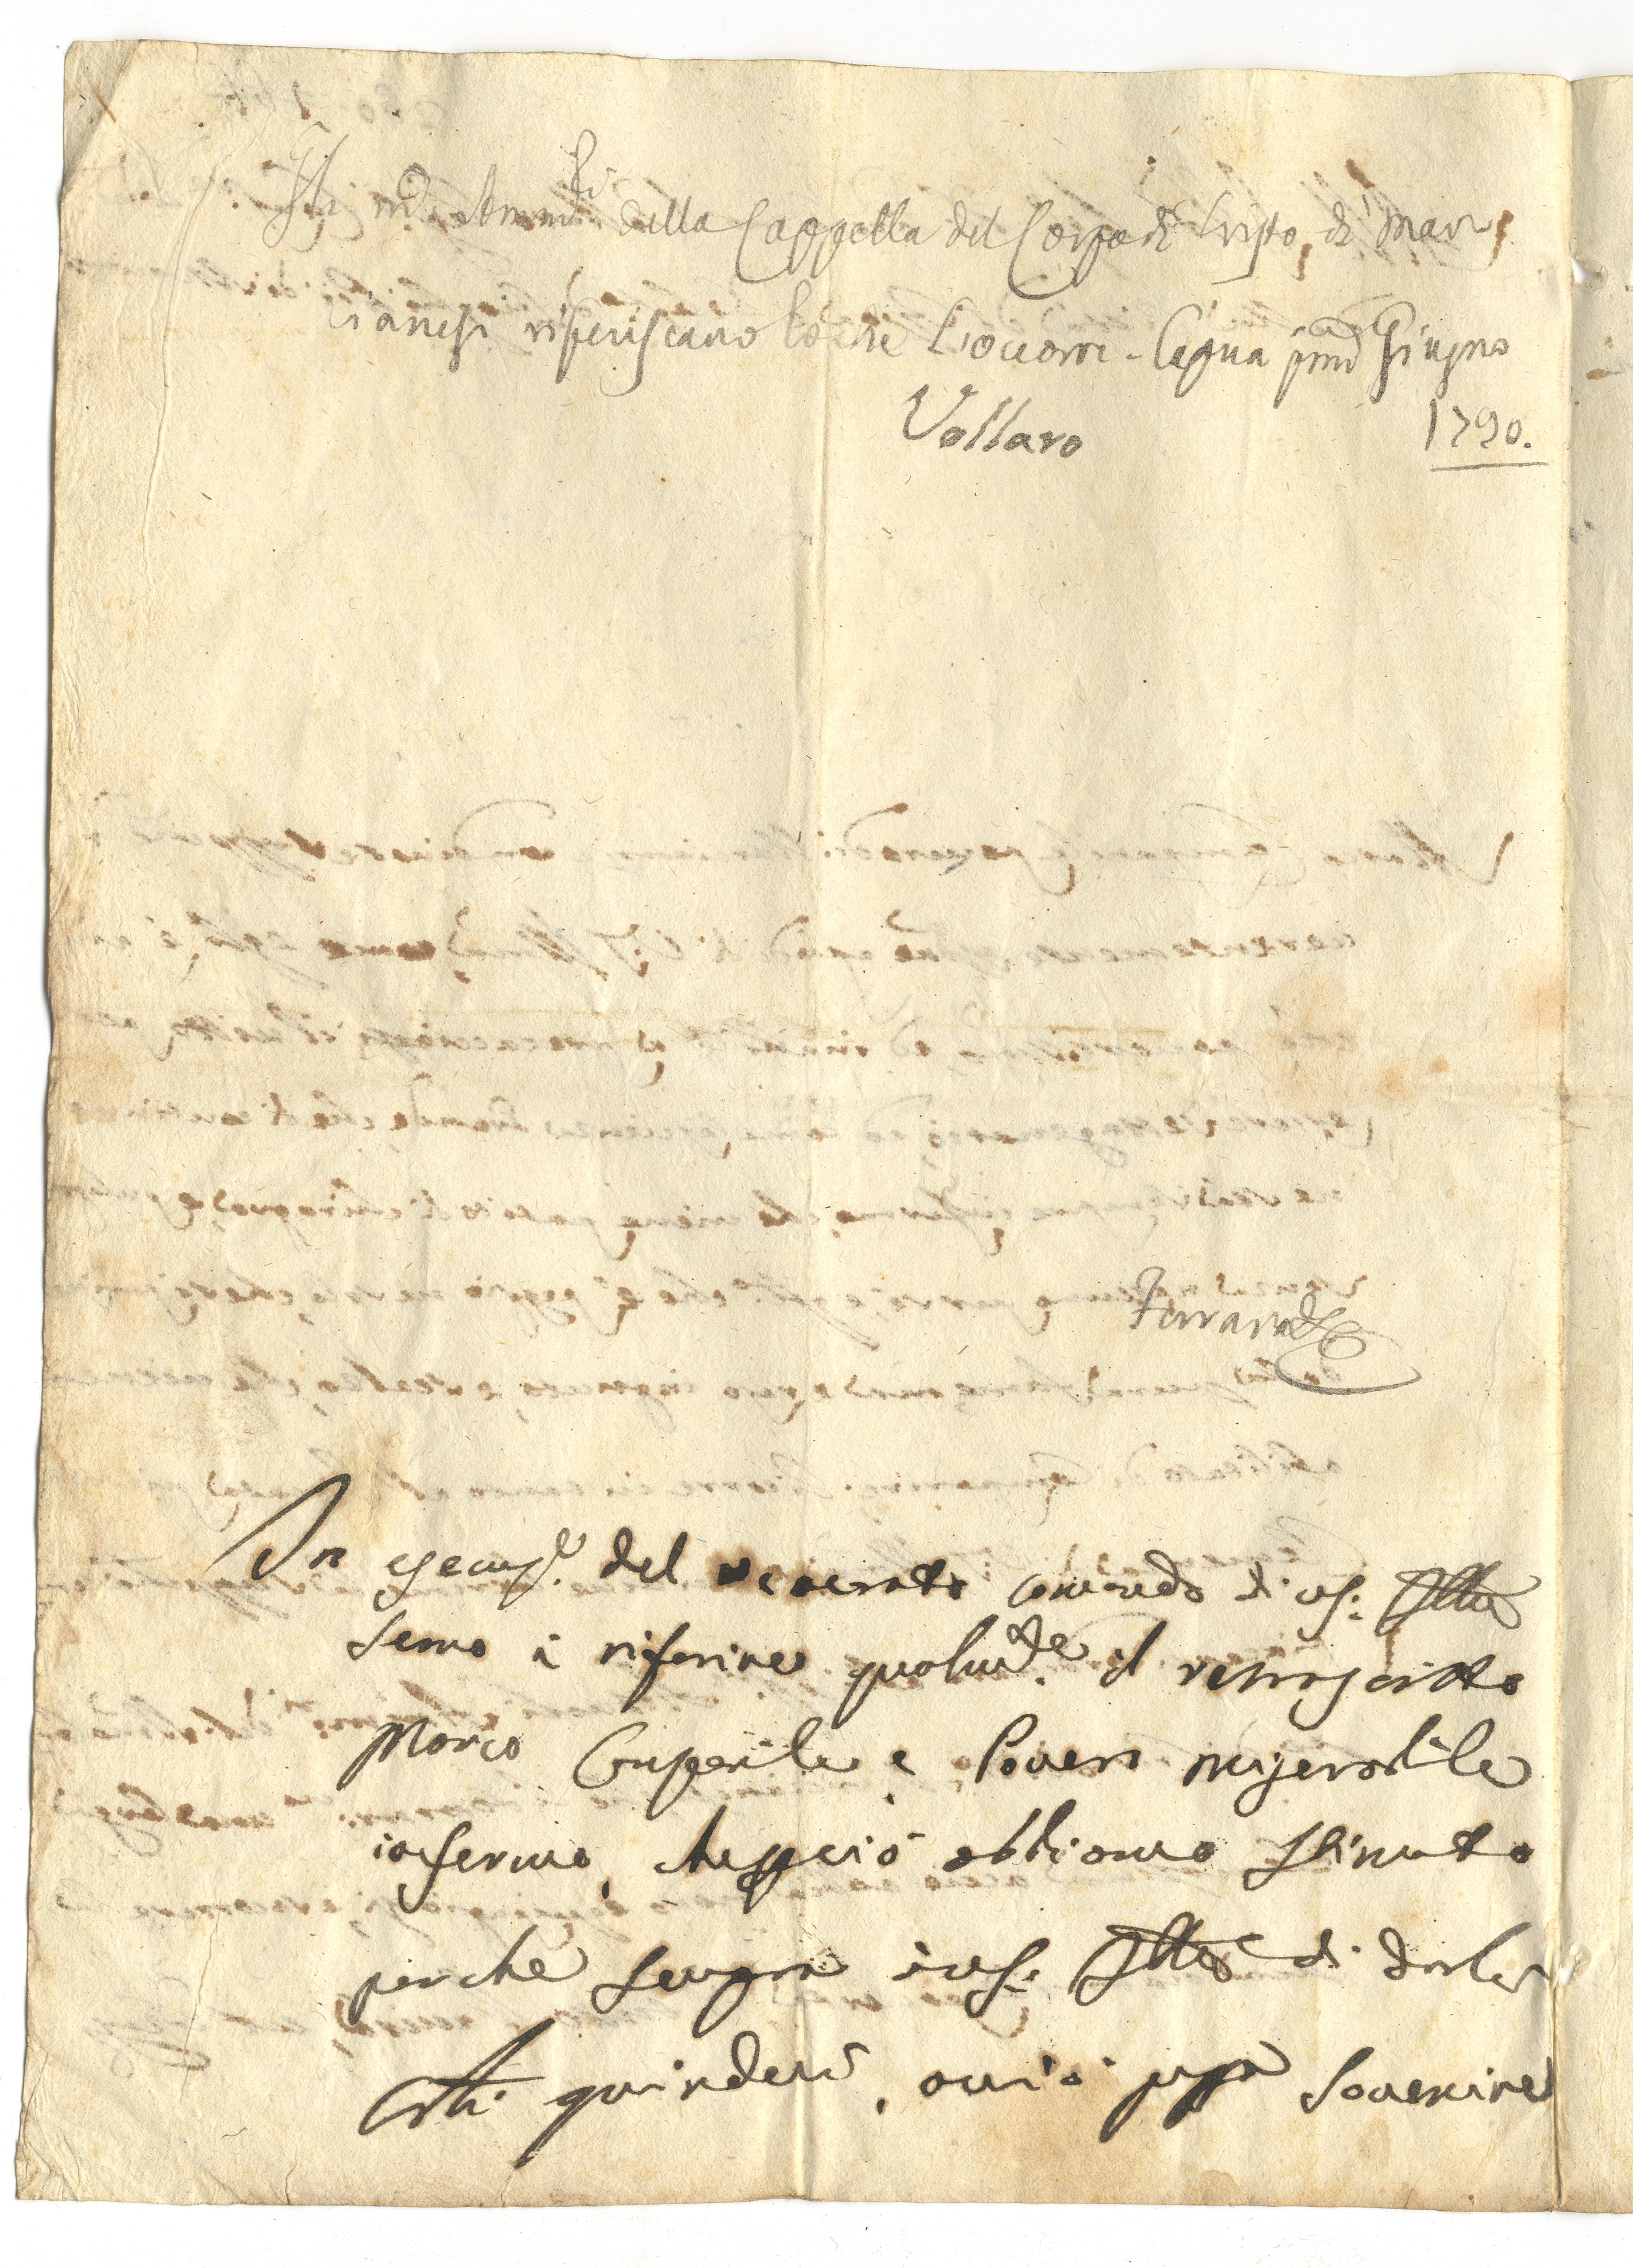 Gli md. Amm.ri della Cappella del Corpo di Cristo, di Mar,
cianesi riferiscano lo che l'occorre. Capua pmo Giugno
Vollaro 1790.
Ferrara
In esecuz.e del venerato comando di vs. Illma
semo à riferire qualm.te il retroscritto
Marco Cuperile è Povero miserabile
infermo, che perciò abbiamo stimato
perche sempre à vs. Illma di darle
Cti quindeci, acciò possa sovenire